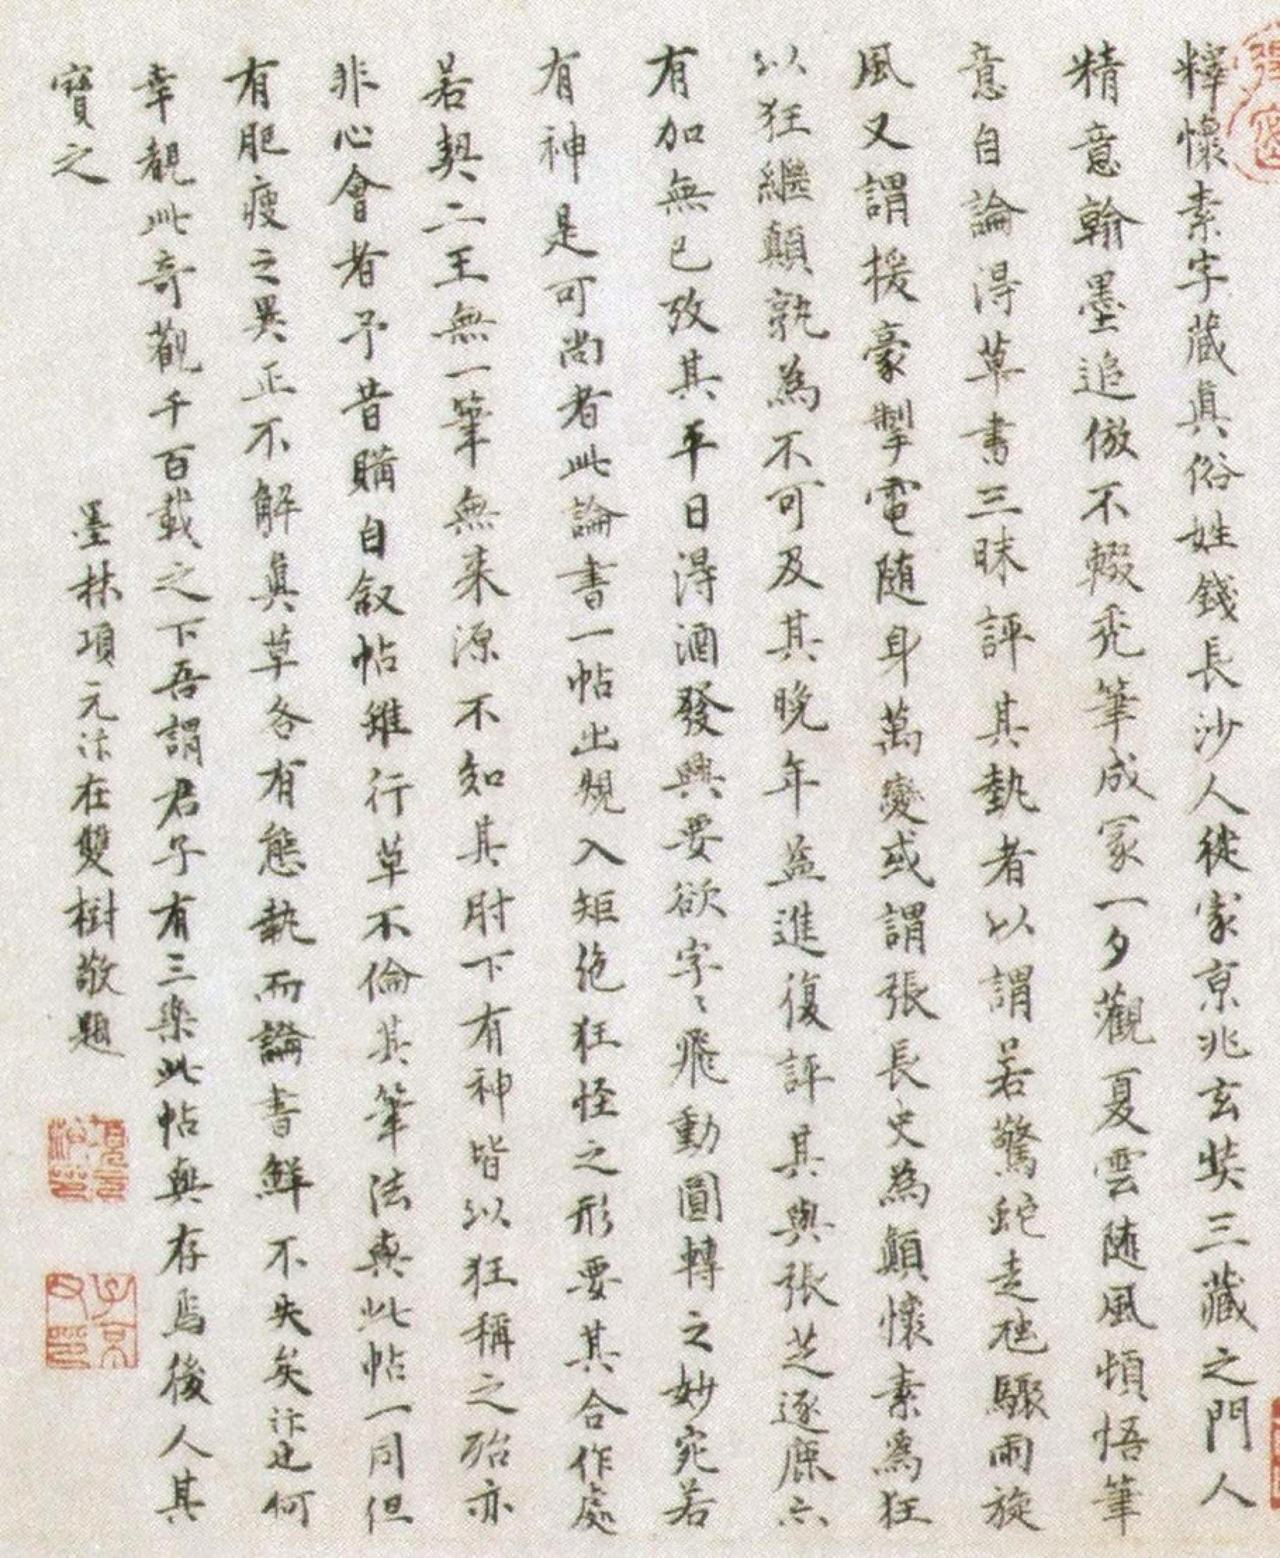 釋懷素字藏真俗姓錢長沙人徙家京兆玄奘三藏之門人
精意翰墨追倣不輟禿筆成冢一夕觀夏雲随風頓悟筆
意自論得草書三昧評其執者以謂若驚蛇走虺驟雨旋
風又謂援豪掣電随身萬變或謂張長史為顛懷素為狂
以狂繼顛孰為不可及其晚年益進復評其與張芝逐鹿六
有加無已攷其平日得酒發興要欲字〻飛動圓轉之妙宛若
有神是可尚者此論書一帖出規入矩絶狂怪之形要其合作處
若契二王無一筆無来源不知其肘下有神皆以狂稱之殆亦
非心會者予昔購自敘帖雖行草不倫其筆法與此帖一同但
有肥瘦之異正不解真草各有態執而論書鮮不失矣汴也何
幸覩此奇觀千百載之下吾謂君子有三樂此帖與存焉後人其
寶之
墨林項元汴在雙樹敬題
項元汴印
子京父印